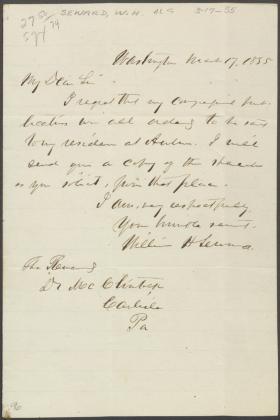 SEWARD, W.H. ALS 3-17-55
Washington March 17, 1855
My Dear Sir
I regret that my congressional publications were all ordered to be sent
to my residence at Auburn. I will
send you a copy of the speeches
as you solicit, from that place.
I am, very respectfully
Your humble servt.
William H Seward
The Reverend
Dr McClintock
Carlisle
Pa